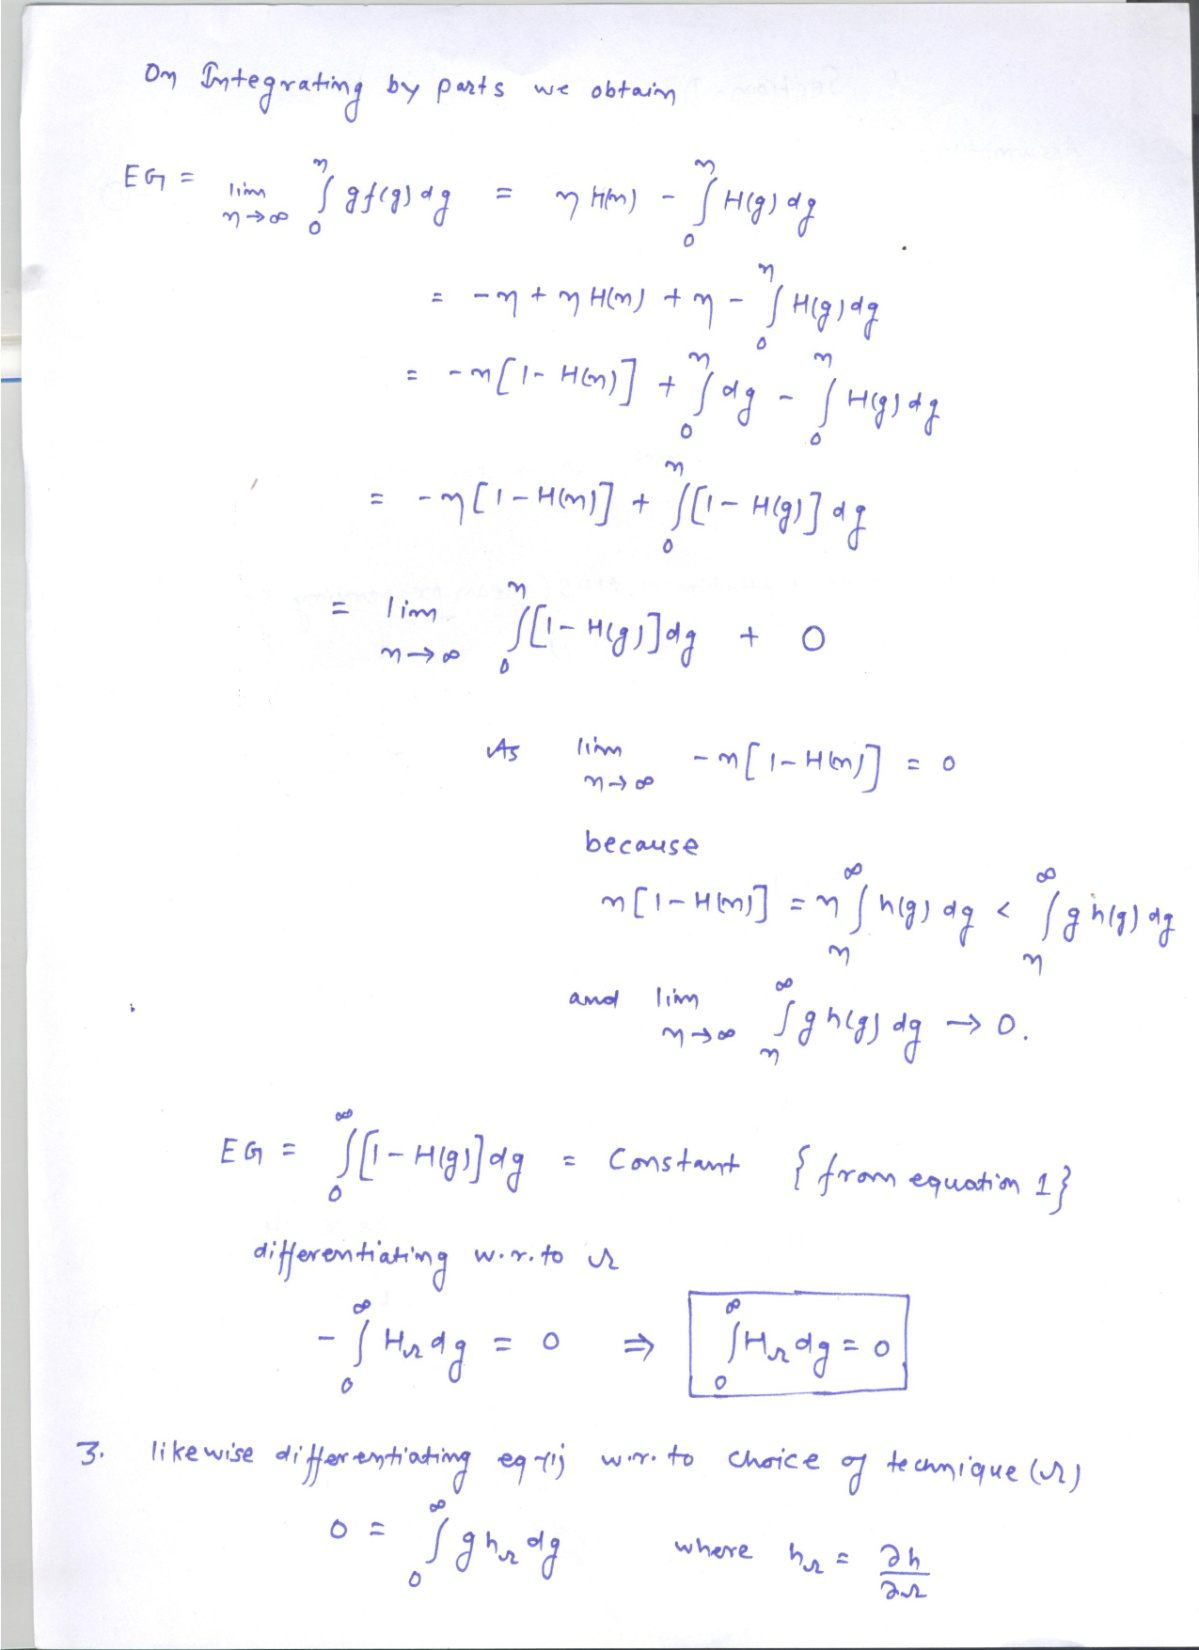 On Integrating by parts we obtain
EG = lim η→∞ ∫₀^η g f(g) dg = η H(η) - ∫₀^η H(g) dg
= -η + η H(η) + η - ∫₀^η H(g) dg
= -η [1 - H(η)] + ∫₀^η dg - ∫₀^η H(g) dg
= -η [1 - H(η)] + ∫₀^η [1 - H(g)] dg
= lim η→∞ ∫₀^η [1 - H(g)] dg + 0
As lim η→∞ -η [1 - H(η)] = 0
because
η [1 - H(η)] = η ∫_η^∞ h(g) dg < ∫_η^∞ g h(g) dg
and lim η→∞ ∫_η^∞ g h(g) dg → 0.
EG = ∫₀^∞ [1 - H(g)] dg = Constant { from equation 1 }
differentiating w.r. to r
- ∫₀^∞ H_r dg = 0 ⇒ ∫₀^∞ H_r dg = 0
3. likewise differentiating eq (1) w.r. to choice of technique (r)
0 = ∫₀^∞ g h_r dg where h_r = ∂h/∂r